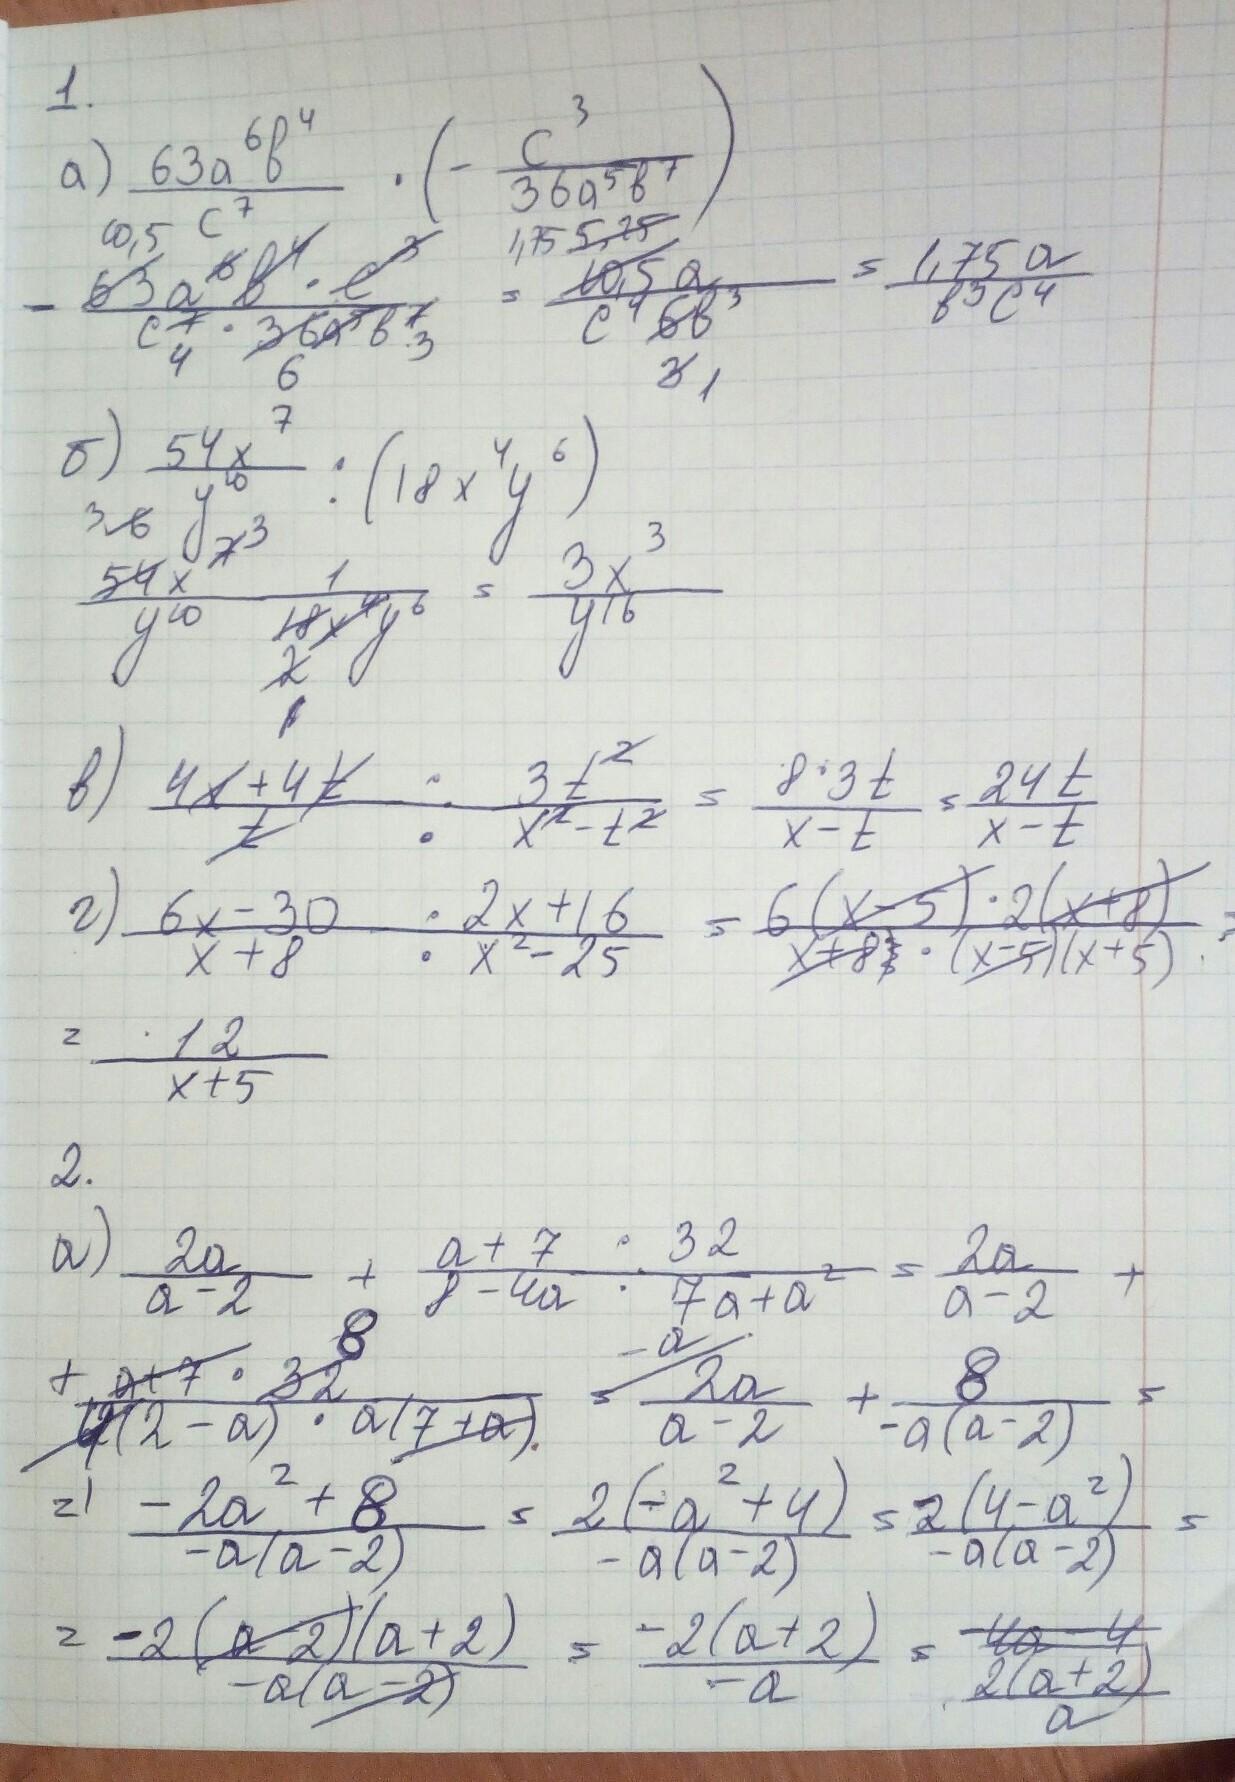 1.
а) 63a⁶b⁴/c⁷ · (- c³/36a⁵b⁷)
- 63a⁶b⁴ · c³/c⁷ · 36a⁵b⁷ = 10,5a/c⁴6b³ = 1,75a/b³c⁴
б) 54x⁷/y¹⁰ : (18x⁴y⁶)
54x⁷/y¹⁰ 1/18x⁴y⁶ = 3x³/y¹⁶
в) 4x+4t/t : 3t²/x²-t² = 8·3t/x-t = 24t/x-t
г) 6x-30/x+8 : 2x+16/x²-25 = 6(x-5)·2(x+8)/x+8 · (x-5)(x+5) =
= 12/x+5
2.
а) 2a/a-2 + a+7/8-4a : 32/7a+a² = 2a/a-2 +
+ a+7 · 32/4(2-a) · a(7+a) = 2a/a-2 + 8/-a(a-2) =
= -2a²+8/-a(a-2) = 2(-a²+4)/-a(a-2) = 2(4-a²)/-a(a-2) =
= -2(a-2)(a+2)/-a(a-2) = -2(a+2)/-a = 2(a+2)/a